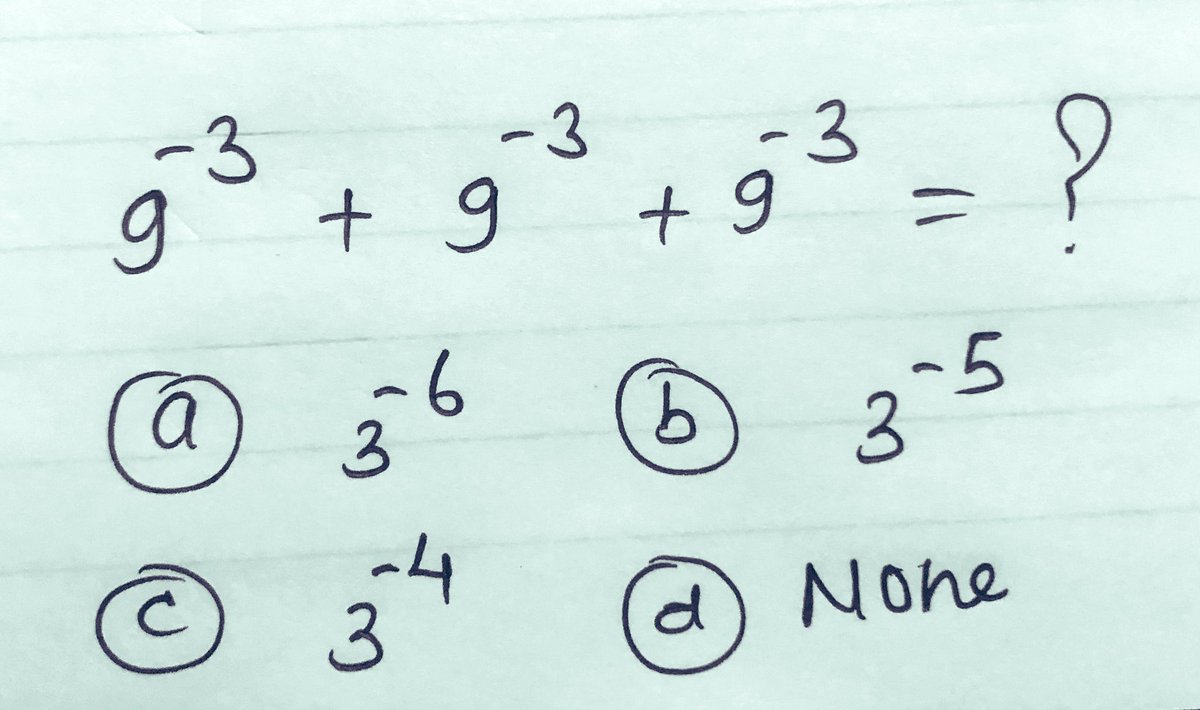 9⁻³ + 9⁻³ + 9⁻³ = ?
ⓐ 3⁻⁶ ⓑ 3⁻⁵
ⓒ 3⁻⁴ ⓓ None